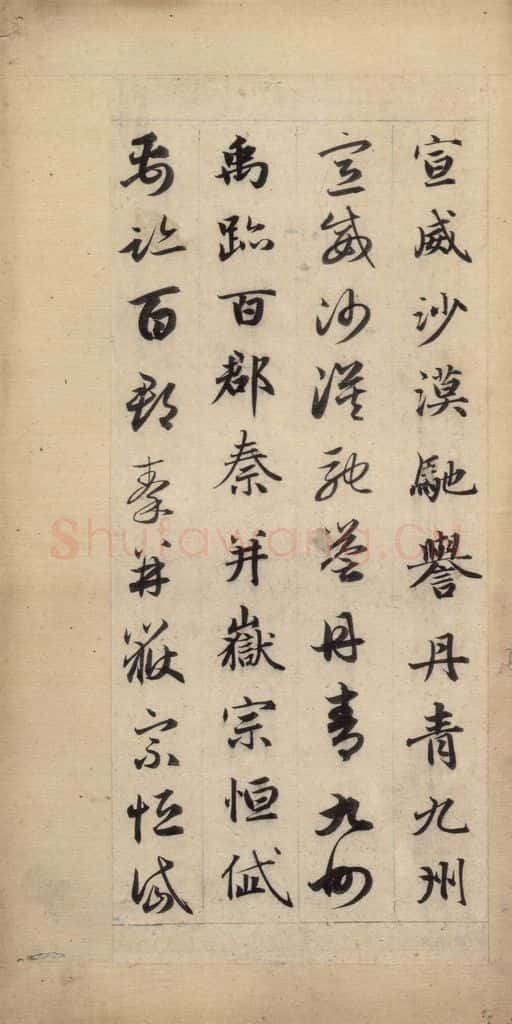 宣威沙漠馳譽丹青九州
宣威沙漠馳譽丹青九州
禹跡百郡秦并嶽宗恒岱
禹跡百郡秦并嶽宗恒岱
Shufawang.CN